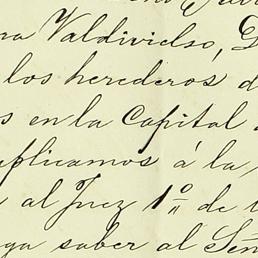 Valdivielso,
los herederos
en la Capital
suplicamos á la
al Juez 1º de
saber al Señ